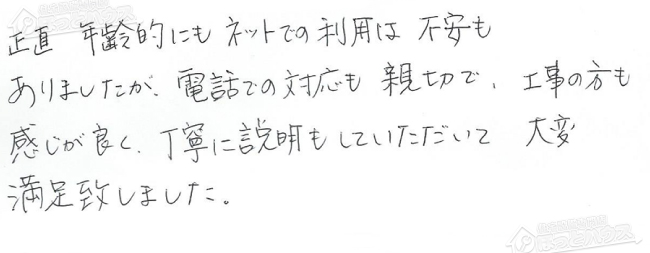 正直 年齢的にも ネットでの利用は 不安も
ありましたが、電話での対応も 親切で、工事の方も
感じが良く、丁寧に説明もしていただいて 大変
満足致しました。